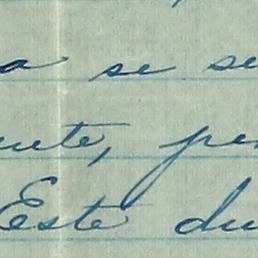 a se se
ente, per
Este du